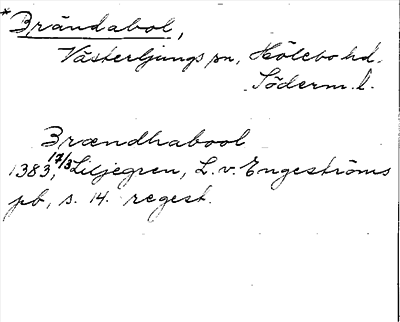 *Brändabol,
Västerljungs sn, Hölebo hd.
Söderm. l.
Brændhabool
1383, 17/3, Liljegren, L. v. Engeströms
pb, s. 14. regest.